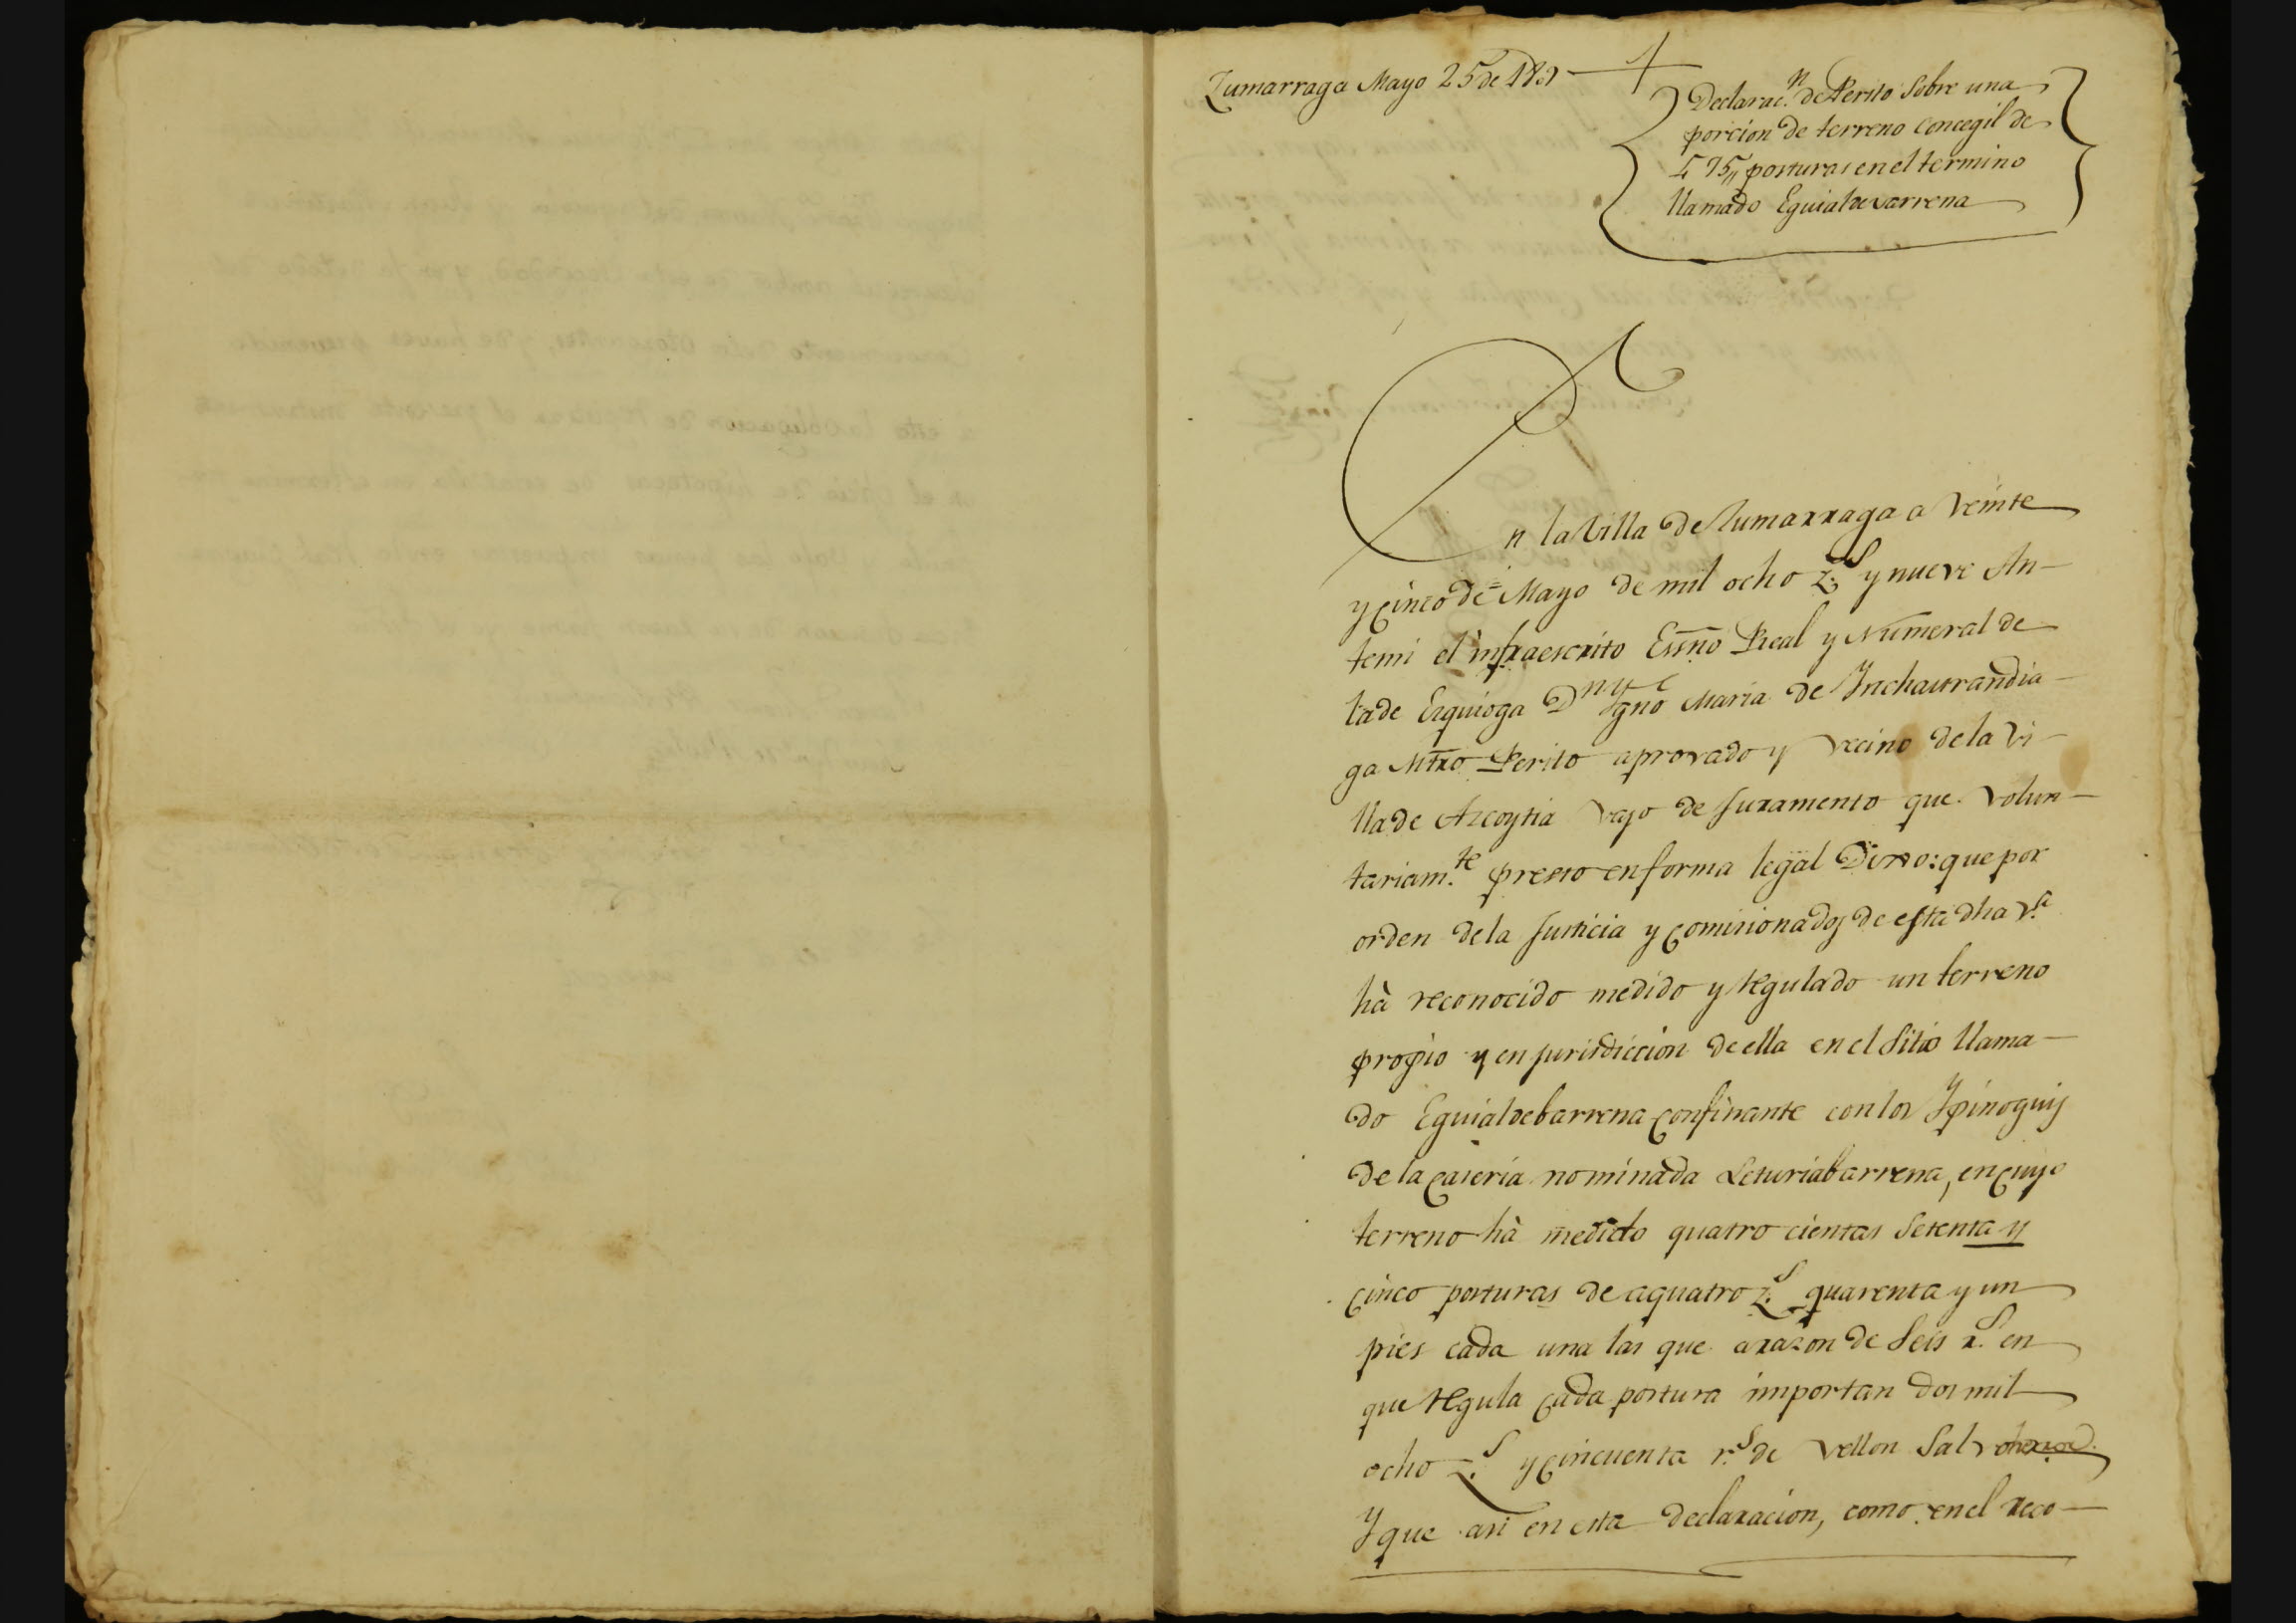 Zumarraga Mayo 25 de 1809
Declarac.n de Perito sobre una
porcion de terreno concegil de
475,, posturas en el termino
llamado Eguialdevarrena
En la Villa de Zumarraga a veinte
y cinco de Mayo de mil ocho z.s y nueve An-
temi el infraescrito Essño Real y Numeral de
la de Ezquioga Dn Ygnº Maria de Ynchaurrandia-
ga Mtro Perito aprovado y vecino de la Vi-
lla de Azcoytia vajo de Juramento que volun-
tariam.te presto en forma legal Dixo: que por
orden de la Justicia y comisionados de esta dha V.a
hà reconocido medido y regulado un terreno
propio y en jurisdiccion de ella en el Sitio llama-
do Eguialdebarrena confinante con los Ypinoguis
de la caseria nominada Leturiabarrena, en cuyo
terreno hà medido quatro cientas setenta y
cinco posturas de a quatro z.s quarenta y un
pies cada una las que a razon de seis r.s en
que regula cada postura importan dos mil
ocho z.s y cincuenta r.s de vellon salvo
Y que asi en esta declaracion, como en el reco-